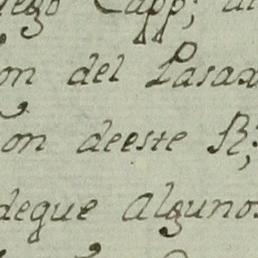 Capp; 
on del Pasax
on deeste R;
degue algunos